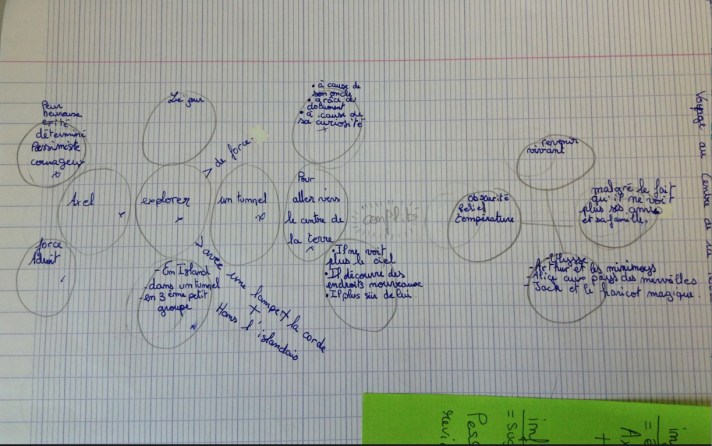 Peur
heureuse
determiné
Pessimiste
courageux
Le jour
• à cause de
son oncle
• grâce au
document
• à cause de
sa curiosité
> de force.
Axel
explorer
un tunnel
Pour
aller vers
le centre de
la terre
force
Adroit
- En Island
- dans un tunnel
- en 3 ème petit
groupe
> avec une lampe + la corde
+
Hans l'islandais
• Il ne voit
plus le ciel
• Il découvre des
endroits nouveaux
• Il plus sûr de lui
complété
obscurité
relief
température
revenir
vivant
malgré le fait
qu'il ne voit
plus ses amis
et sa famille.
- Ulysse
- Arthur et les minimoys
- Alice aux pays des merveilles
- Jack et le haricot magique.
Voyage au Centre de la Terre